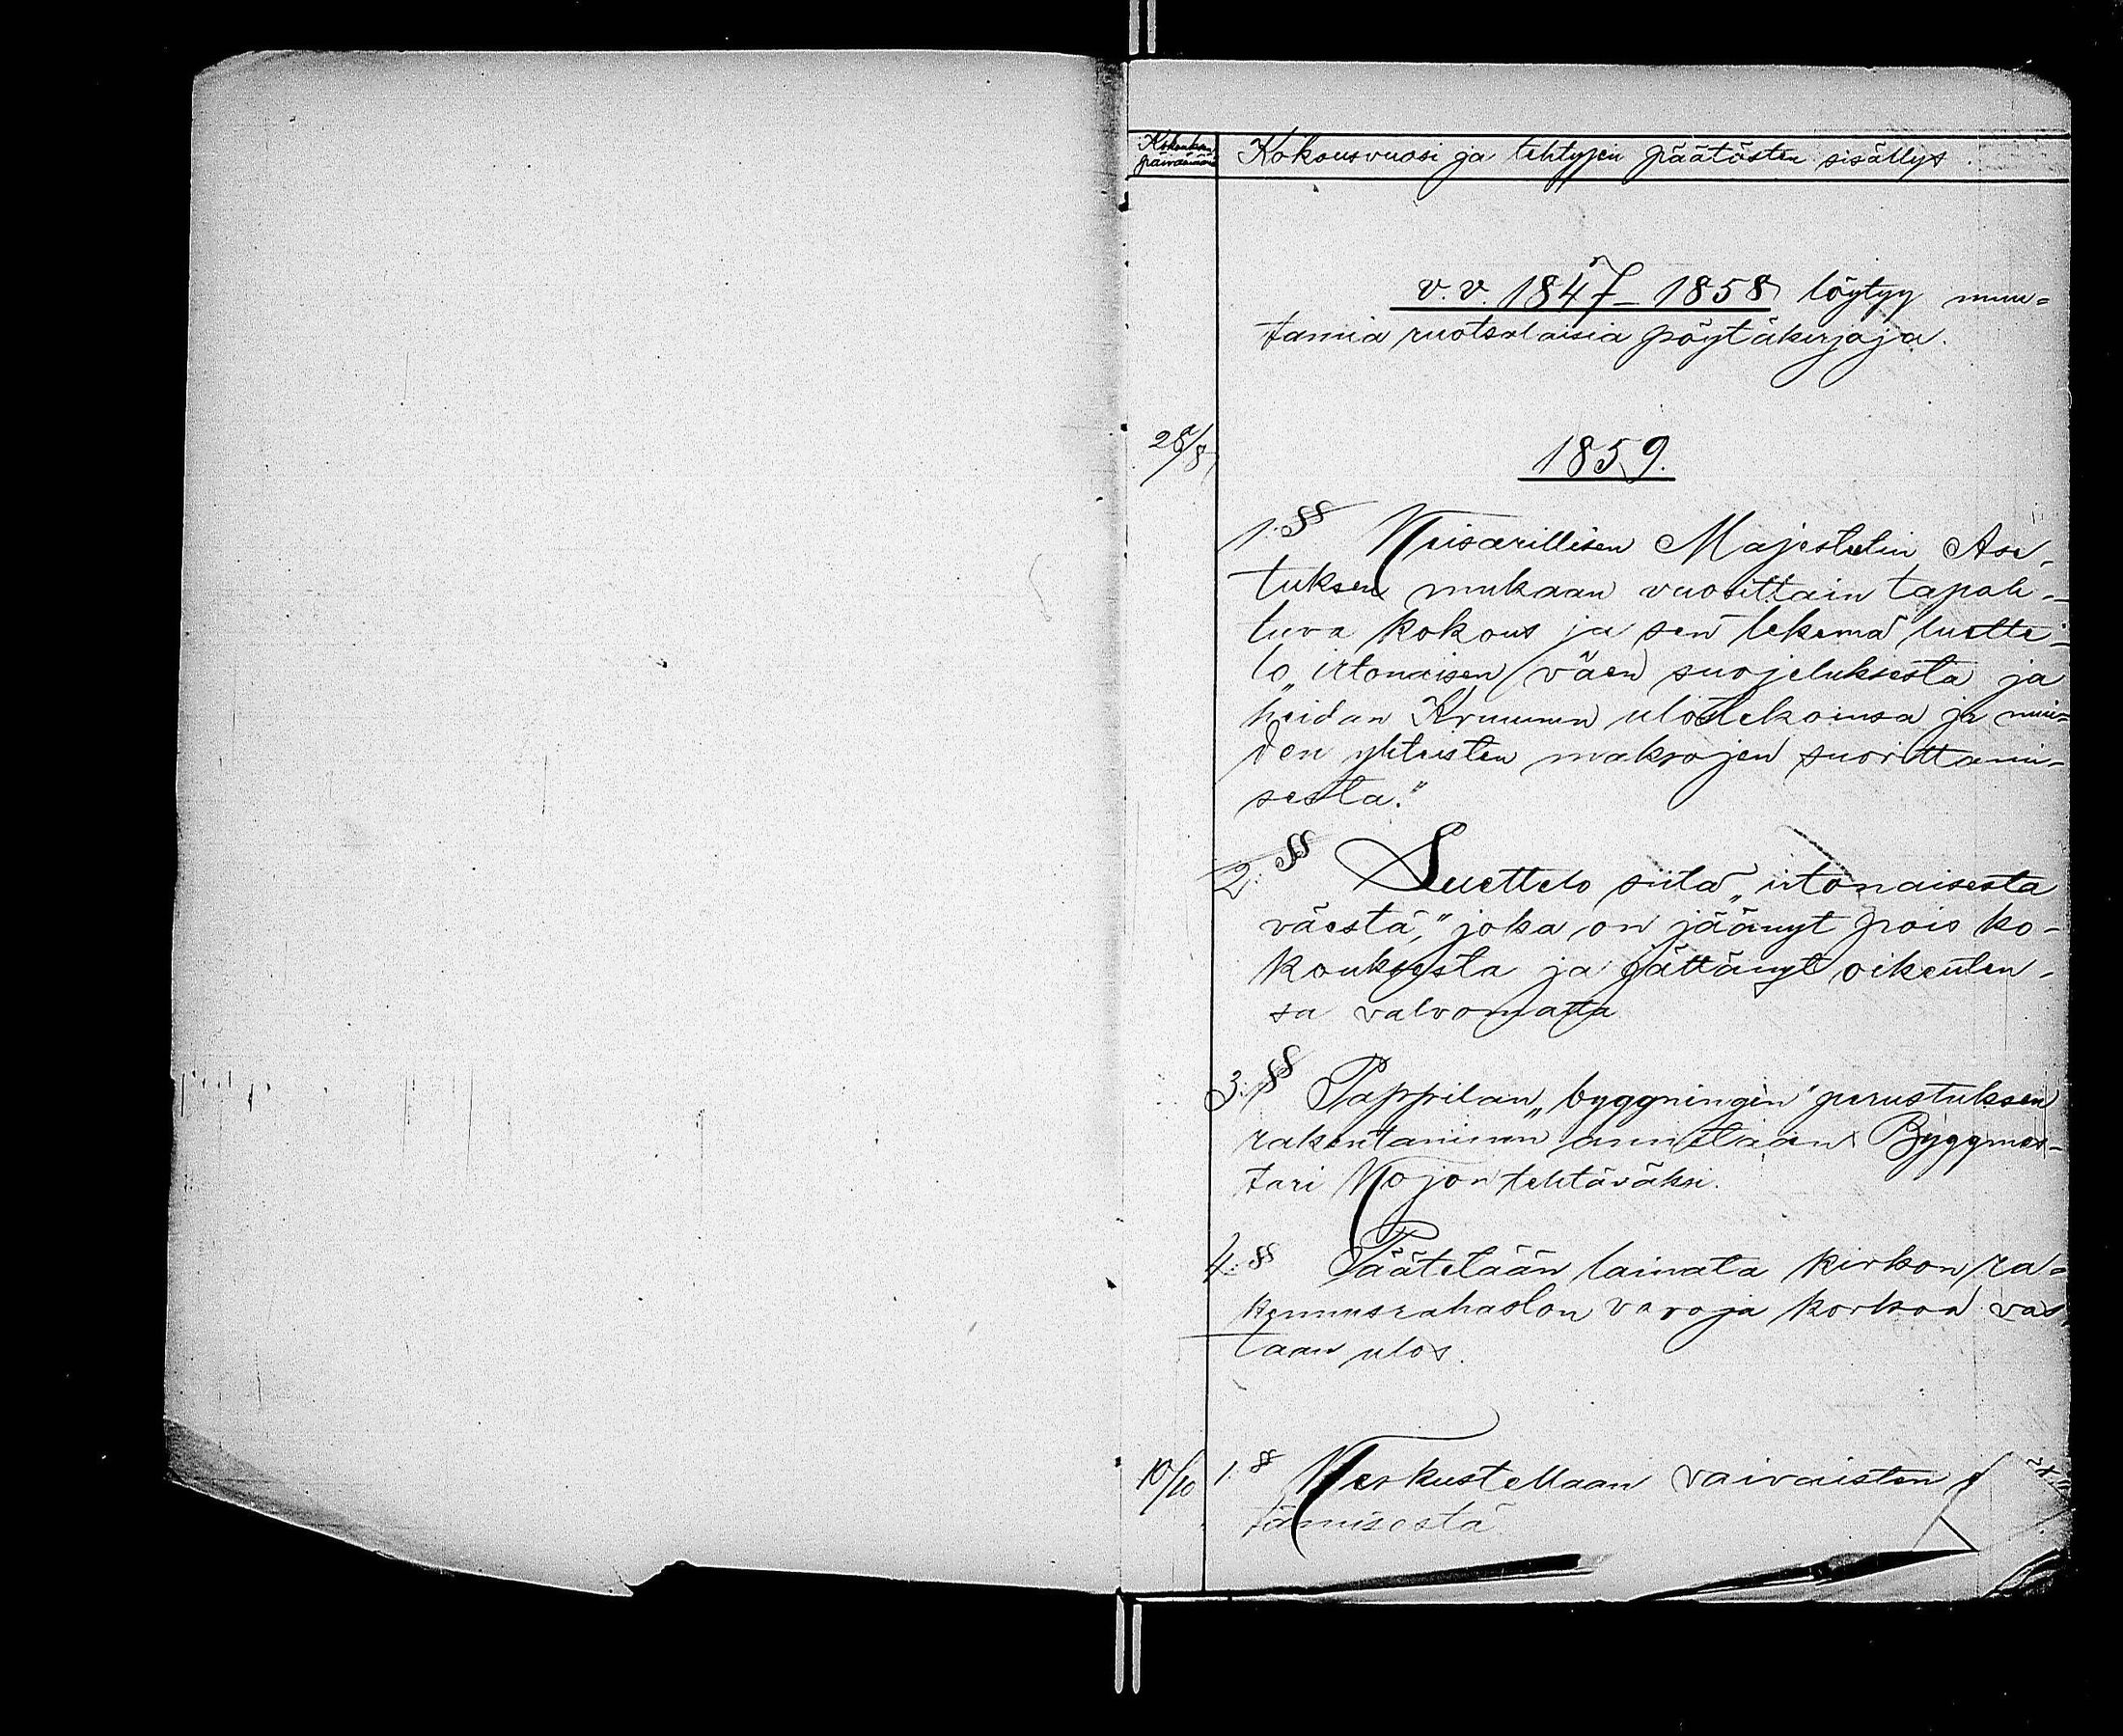 Kokouksen Kokousvuosi ja tehtyjen päätösten sisällys.
päivämäärä
v.v. 1847–1858 löytyy muu=
tamia ruotsalaisia pöytäkirjoja.
1859.
1.§§ Keisarillisen Majestetin Ase-
tuksen mukaan vuosittain tapah-
tuva kokous ja sen tekemä luette-
lo „irtonaisen väen suojeluksesta ja
heidän Kruunun ulostekoinsa ja mui=
den yhteisten maksojen suorittami-
sesta."
2:§§ Luettelo siitä „irtonaisesta
väestä," joka on jäänyt pois ko-
kouksesta ja jättänyt oikeuten-
sa valvomatta
3:§§ Pappilan „byggningin" perustuksen
rakentaminen annetaan Byggmes-
tari Kojon tehtäväksi.
4:§§ Päätetään lainata kirkon ra-
kennusrahaston varoja korkoa vas-
taan ulos.
10/10 1.§ Keskustellaan vaivaisten
tämisestä